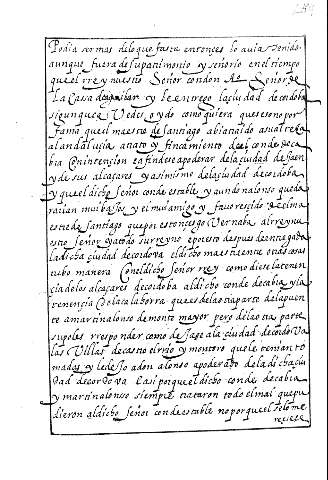 Podia ser mas de lo que fasta entonces lo avia tenido
aunque fuera de su patrimonio y señorio en el tiempo
que el rrey nuestro Señor con don Señor de
la Cassa de aguilar y le entrego la ciudad de cordoba
segun que Vedes oydo como quiera que esto no por
fama que el maestro de santiago abia traido a su al reza
al andaluçia a trato y fincamiento del conde de ca
bra Con intençion e a fin de se apoderar de la ciudad de Jaen
y de sus alcaçares y asi mismo de la ciudad de cordoba
y que el dicho Señor condestable y aun don alonso queda
rian muy baxos y el muy amigo y favoresçido del ma
estre de santiago que por estonçes governaba al rrey nu
estro Señor y a todo su rreyno e puesto despues de entregada
la dicha ciudad de cordova el dicho maestre ante otras cosas
tubo manera Con el dicho señor rrey como diese la tenen
cia de los alcaçares de cordoba al dicho conde de cabra y la
tenençia de la calaborra que es de la otra parte de la puen
te a martin alonso de monte mayor pero de la otra parte
supo les rresponder como de Jase a la ciudad de cordova
las Villas de castro el rrio y montoro que le tenian to
madas y le dexo a don alonso apoderado de la dicha ciu
dad de cordova E asi porque el dicho conde de cabra
y martin alonso siempre trataron todo el mal que pu
dieron al dicho Señor condestable no porque el se lo me
reciese